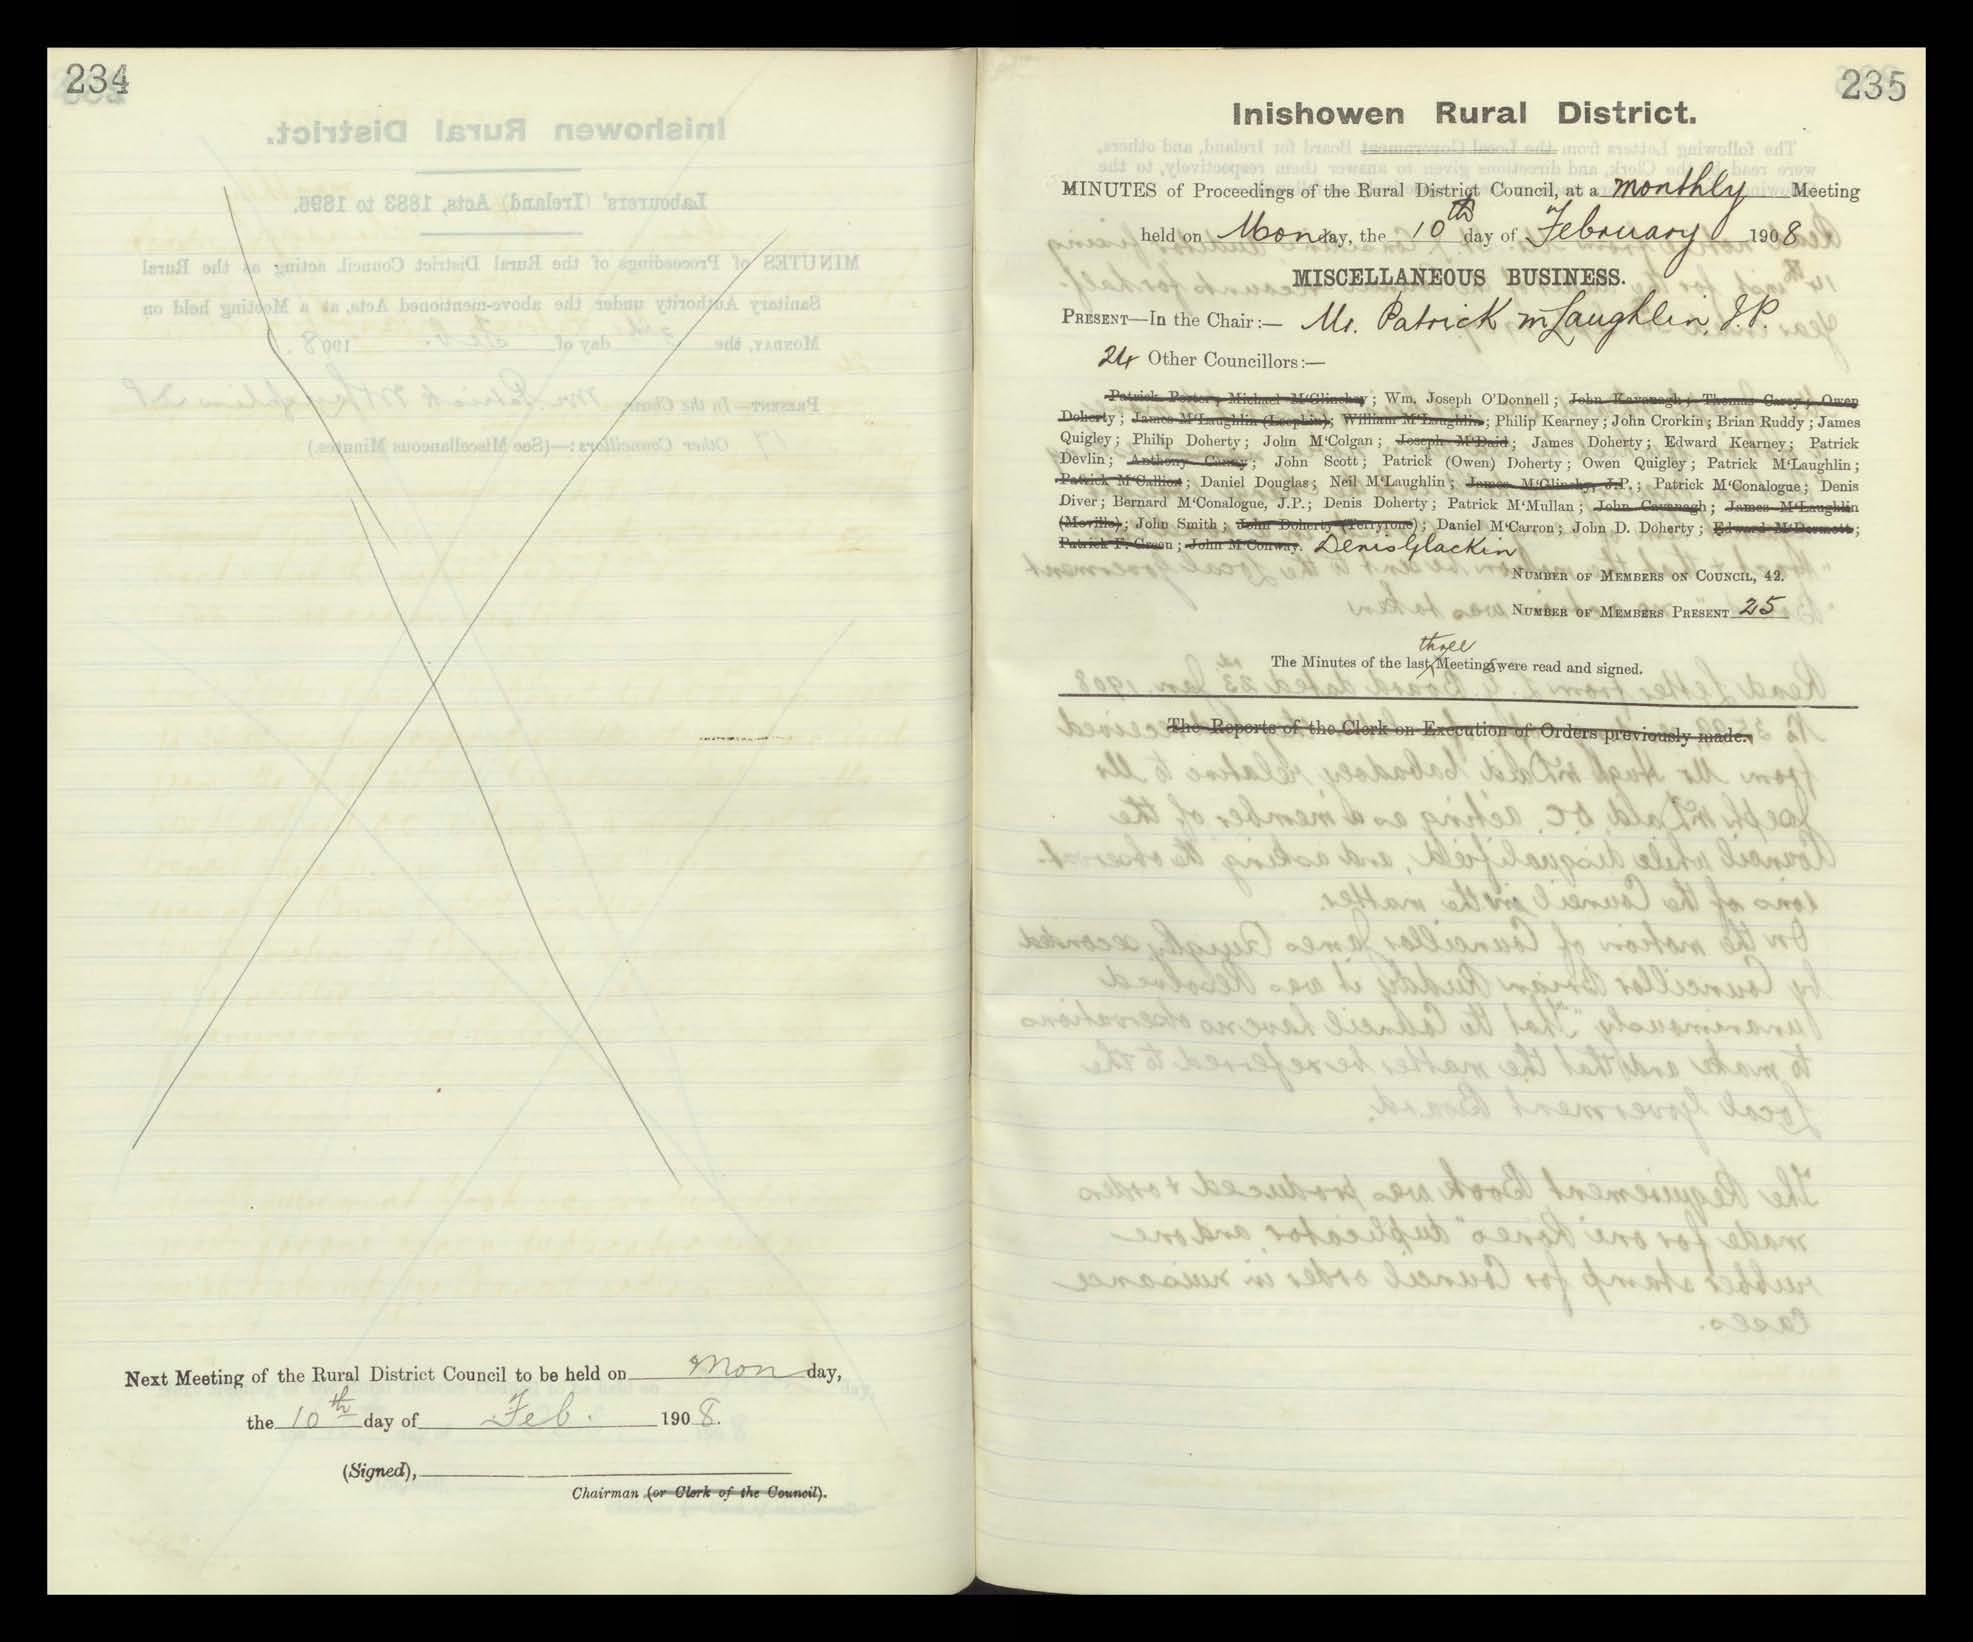 234
Next Meeting of the Rural District Council to be held on Mon day,
the 10th day of Feb. 1908.
(Signed),
Chairman (or Clerk of the Council).
235
Inishowen Rural District.
MINUTES of Proceedings of the Rural District Council, at a monthly Meeting
held on Monday, the 10th day of February 1908
MISCELLANEOUS BUSINESS.
PRESENT—In the Chair:— Mr. Patrick McLaughlin, J.P.
24 Other Councillors:—
Patrick Porter; Michael M'Glinchey; Wm. Joseph O'Donnell; John Kavanagh; Thomas Carey; Owen
Doherty; James M'Laughlin (Leophin); William M'Laughlin; Philip Kearney; John Crorkin; Brian Ruddy; James
Quigley; Philip Doherty; John M'Colgan; Joseph M'Daid; James Doherty; Edward Kearney; Patrick
Devlin; Anthony Canny; John Scott; Patrick (Owen) Doherty; Owen Quigley; Patrick M'Laughlin;
Patrick M'Callion; Daniel Douglas; Neil M'Laughlin; James M'Glinchy, J.P.; Patrick M'Conalogue; Denis
Diver; Bernard M'Conalogue, J.P.; Denis Doherty; Patrick M'Mullan; John Cavanagh; James M'Laughlin
(Moville); John Smith; John Doherty (Terryrone); Daniel M'Carron; John D. Doherty; Edward M'Dermott;
Patrick F. Green; John M'Conway. Denis Glackin
NUMBER OF MEMBERS ON COUNCIL, 42.
NUMBER OF MEMBERS PRESENT 25
three
The Minutes of the last Meetings were read and signed.
The Reports of the Clerk on Execution of Orders previously made.